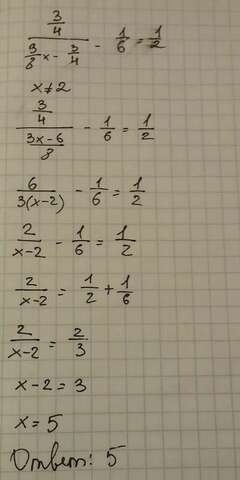 (3/4)/(3/8 x - 3/4) - 1/6 = 1/2
x≠2
(3/4)/((3x-6)/8) - 1/6 = 1/2
6/(3(x-2)) - 1/6 = 1/2
2/(x-2) - 1/6 = 1/2
2/(x-2) = 1/2 + 1/6
2/(x-2) = 2/3
x-2=3
x=5
Ответ: 5